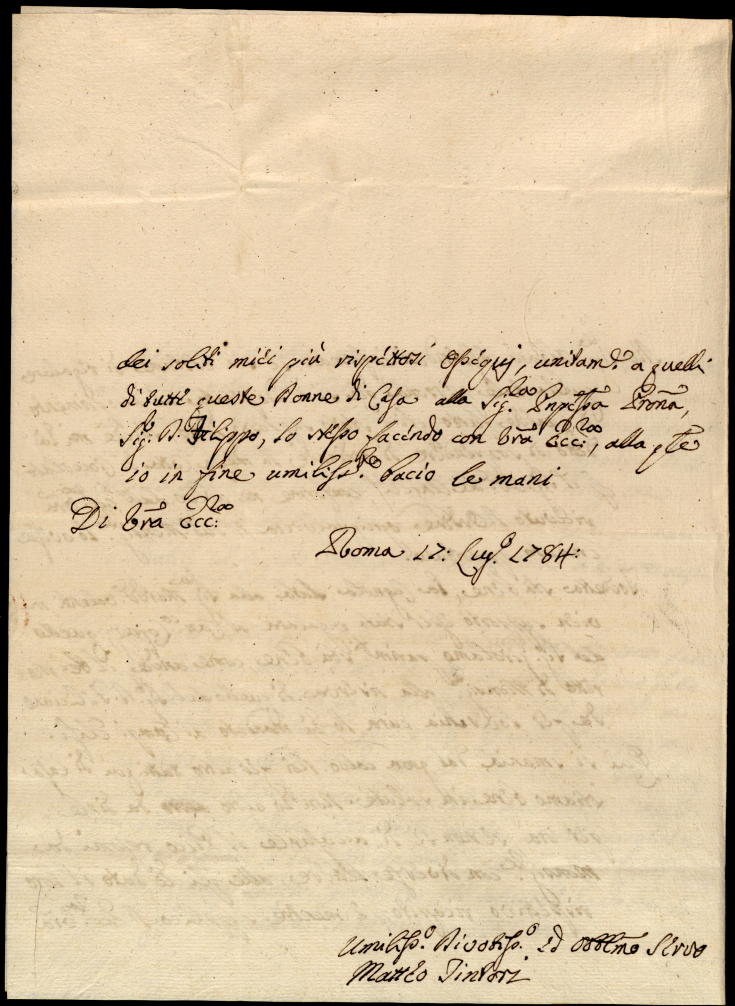 dei soliti miei più rispettosi Ossequj, unitam.e a quelli
di tutte queste Donne di Casa alla Sig.ra Pnpessa Prona,
Sig. D. Filippo, lo stesso facendo con Vra Ecc:za, alla qle
io in fine umiliss.te bacio le mani
Di Vra Ecc:za
Roma 17: Lug.o 1784:
Umiliss.o Divotiss.o ed Obblmo Servo
Matteo Tintori